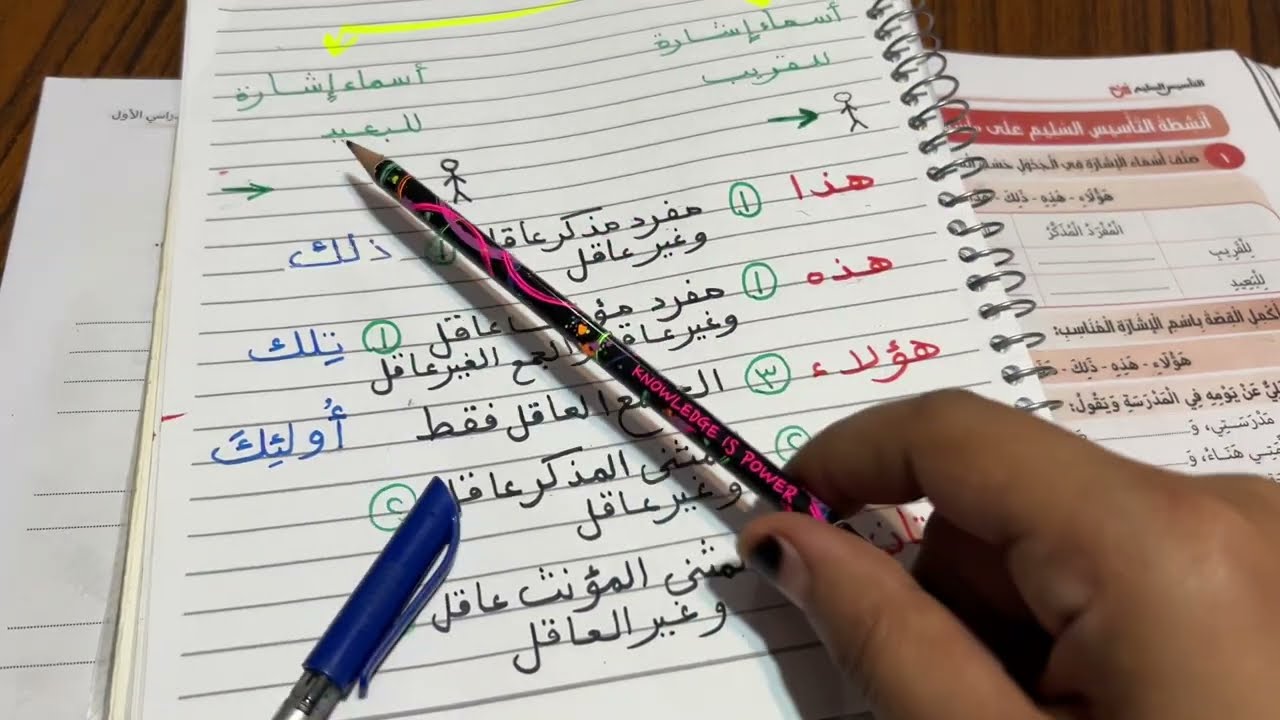 أسماء إشارة
للقريب
أسماء إشارة
للبعيد
هذا
١ مفرد مذكر عاقل
وغير عاقل
ذلك
هذه
١ مفرد
عاقل
وغير عاقل
الجمع الغير عاقل
١ تِلك
هؤلاء
٣
العاقل فقط
أُولئِكَ
مثنى المذكر عاقل
وغير عاقل
٢
المثنى المؤنث عاقل
وغير العاقل
KNOWLEDGE IS POWER
راسي الأول
أنشطة التأسيس السليم على
١ صنف أسماء الإشارة في الجدول حسب
هَؤُلَاءِ - هَذِهِ - ذَلِكَ -
الْمُفْرَدُ الْمُذَكَّرُ
لِلْقَرِيبِ
لِلْبَعِيدِ
أكمل القصة باسم الإشارة المناسب:
هَؤُلَاءِ - هَذِهِ - ذَلِكَ -
عَنْ يَوْمِهِ فِي الْمَدْرَسَةِ وَيَقُولُ:
مَدْرَسَتِي، وَ
هَنَاءُ، وَ